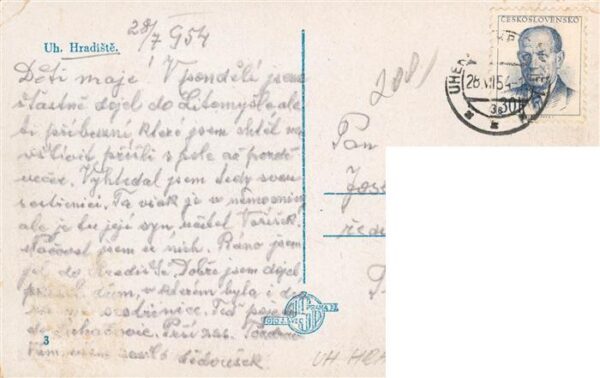 28/7 1954
Uh. Hradiště.
Děti moje! V pondělí jsem
šťastně dojel do Litomyšle ale
ti příbuzní které jsem chtěl na-
vštívit přišli s pole až pozdě
večer. Vyhledal jsem tedy svou
sestřenici. Ta však je v nemocnici
ale je tu její syn, učitel Voříšek.
Nocoval jsem u nich. Ráno jsem
jel do Hradiště. Dobře jsem dojel
dům, v kterém byla i
sestřenice. Teď pojedu
do Luhačovic. Prší zas.
Vám všem dědoušek
3
ČESKOSLOVENSKO
UHER
28.VII.54
30h
2081
Pan
Jose
ředi
PRAHA
UH. HRA